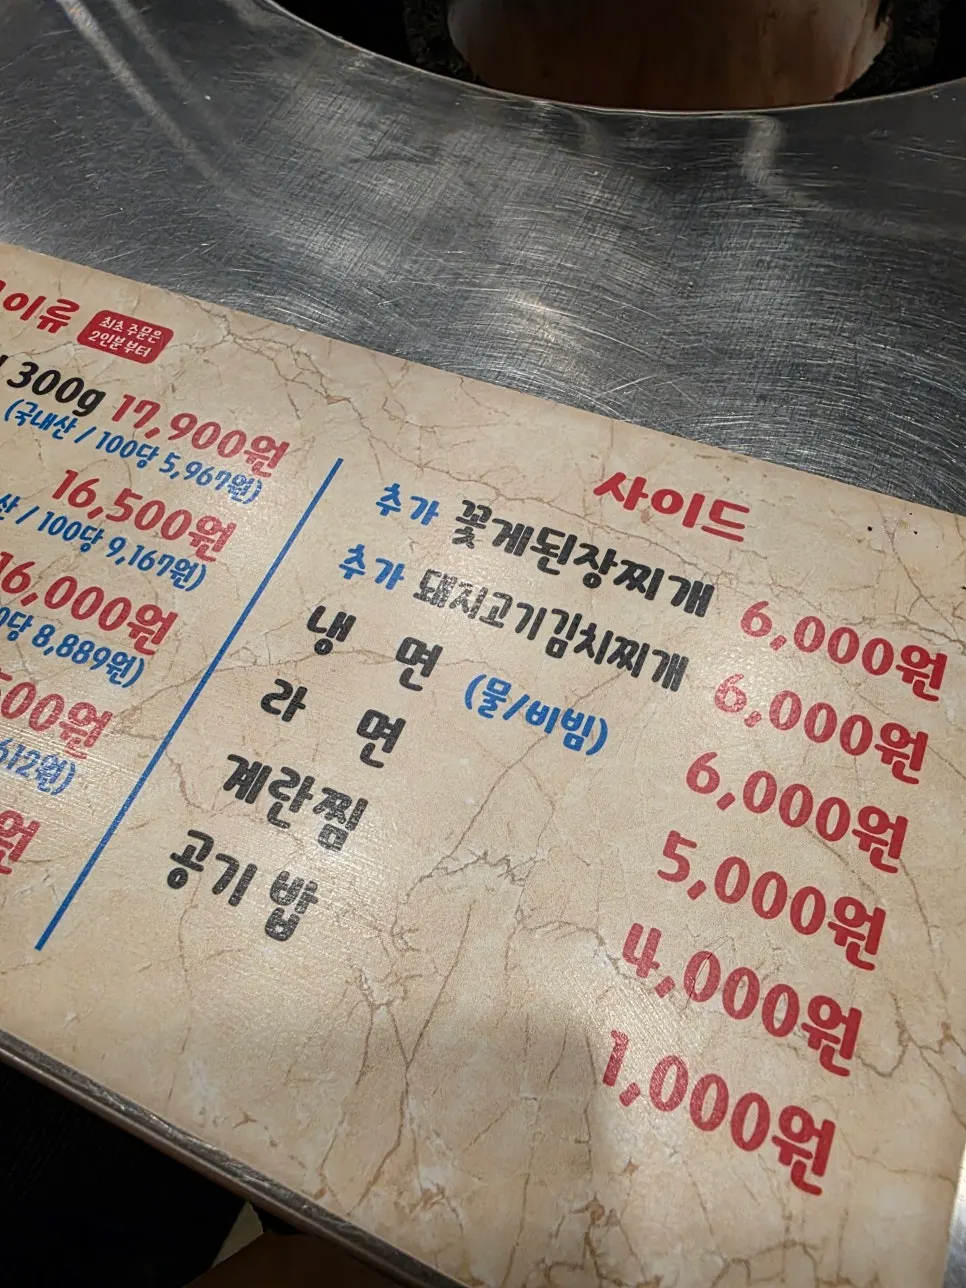 이류 최초 주문은
2인분 부터
300g 17,900원
(국내산 / 100당 5,967원)
16,500원
/ 100당 9,167원)
16,000원
8,889원)
500원
612원)
원
사이드
추가 꽃게된장찌개 6,000원
추가 돼지고기김치찌개 6,000원
냉 면 (물/비빔) 6,000원
라 면 5,000원
계란찜 4,000원
공기 밥 1,000원